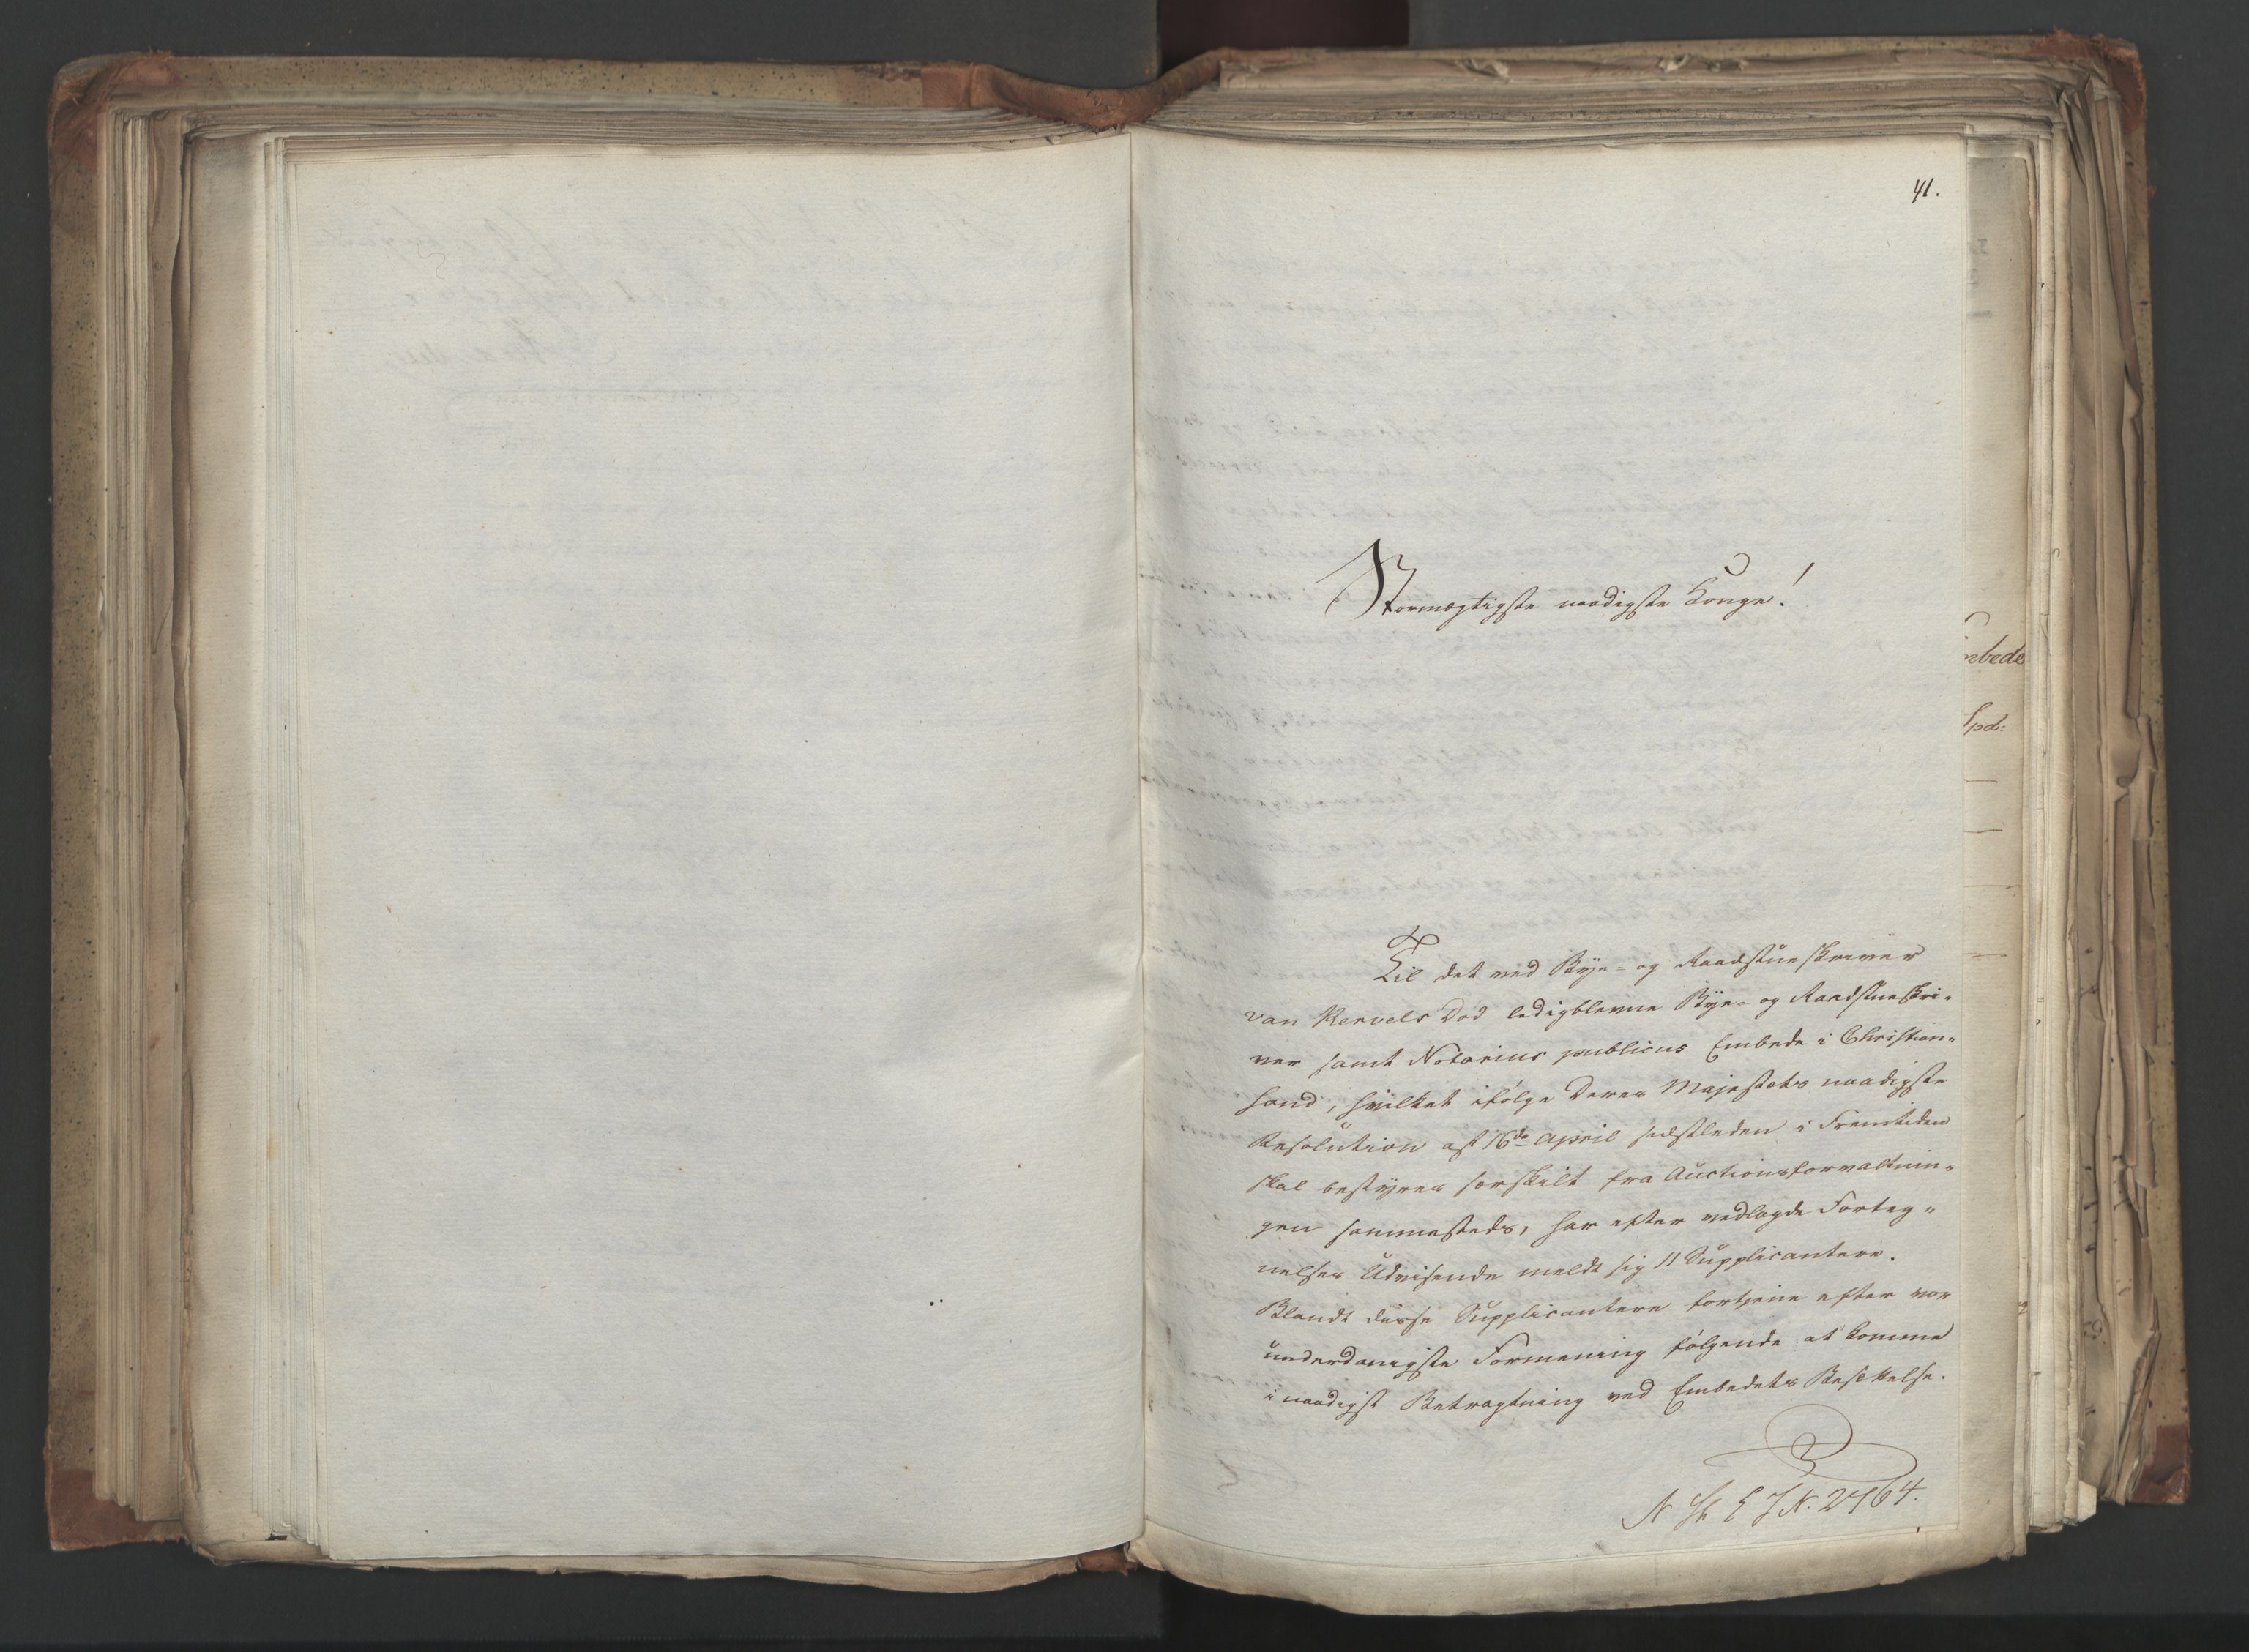 41.
Stormægtigste naadigste Konge!
Til det ved Bye- og Raadstueskriver
van Kervels Død ledigblevne Bye- og Raadstueskri-
ver samt Notarius publicus Embede i Christian-
sand, hvilket ifølge Deres Majestæts naadigste
Resolution af 16de April sidstleden i Fremtiden
skal bestyres særskilt fra Auctionsforvaltnin-
gen sammesteds, har efter vedlagde Forteg-
nelses Udvisende meldt sig 11 Supplicantere.
Blandt disse Supplicantere fortjene efter vor
underdanigste Formening følgende at komme
i naadigst Betragtning ved Embedets Besættelse.
N JN. 2764.
mbede
Spd: